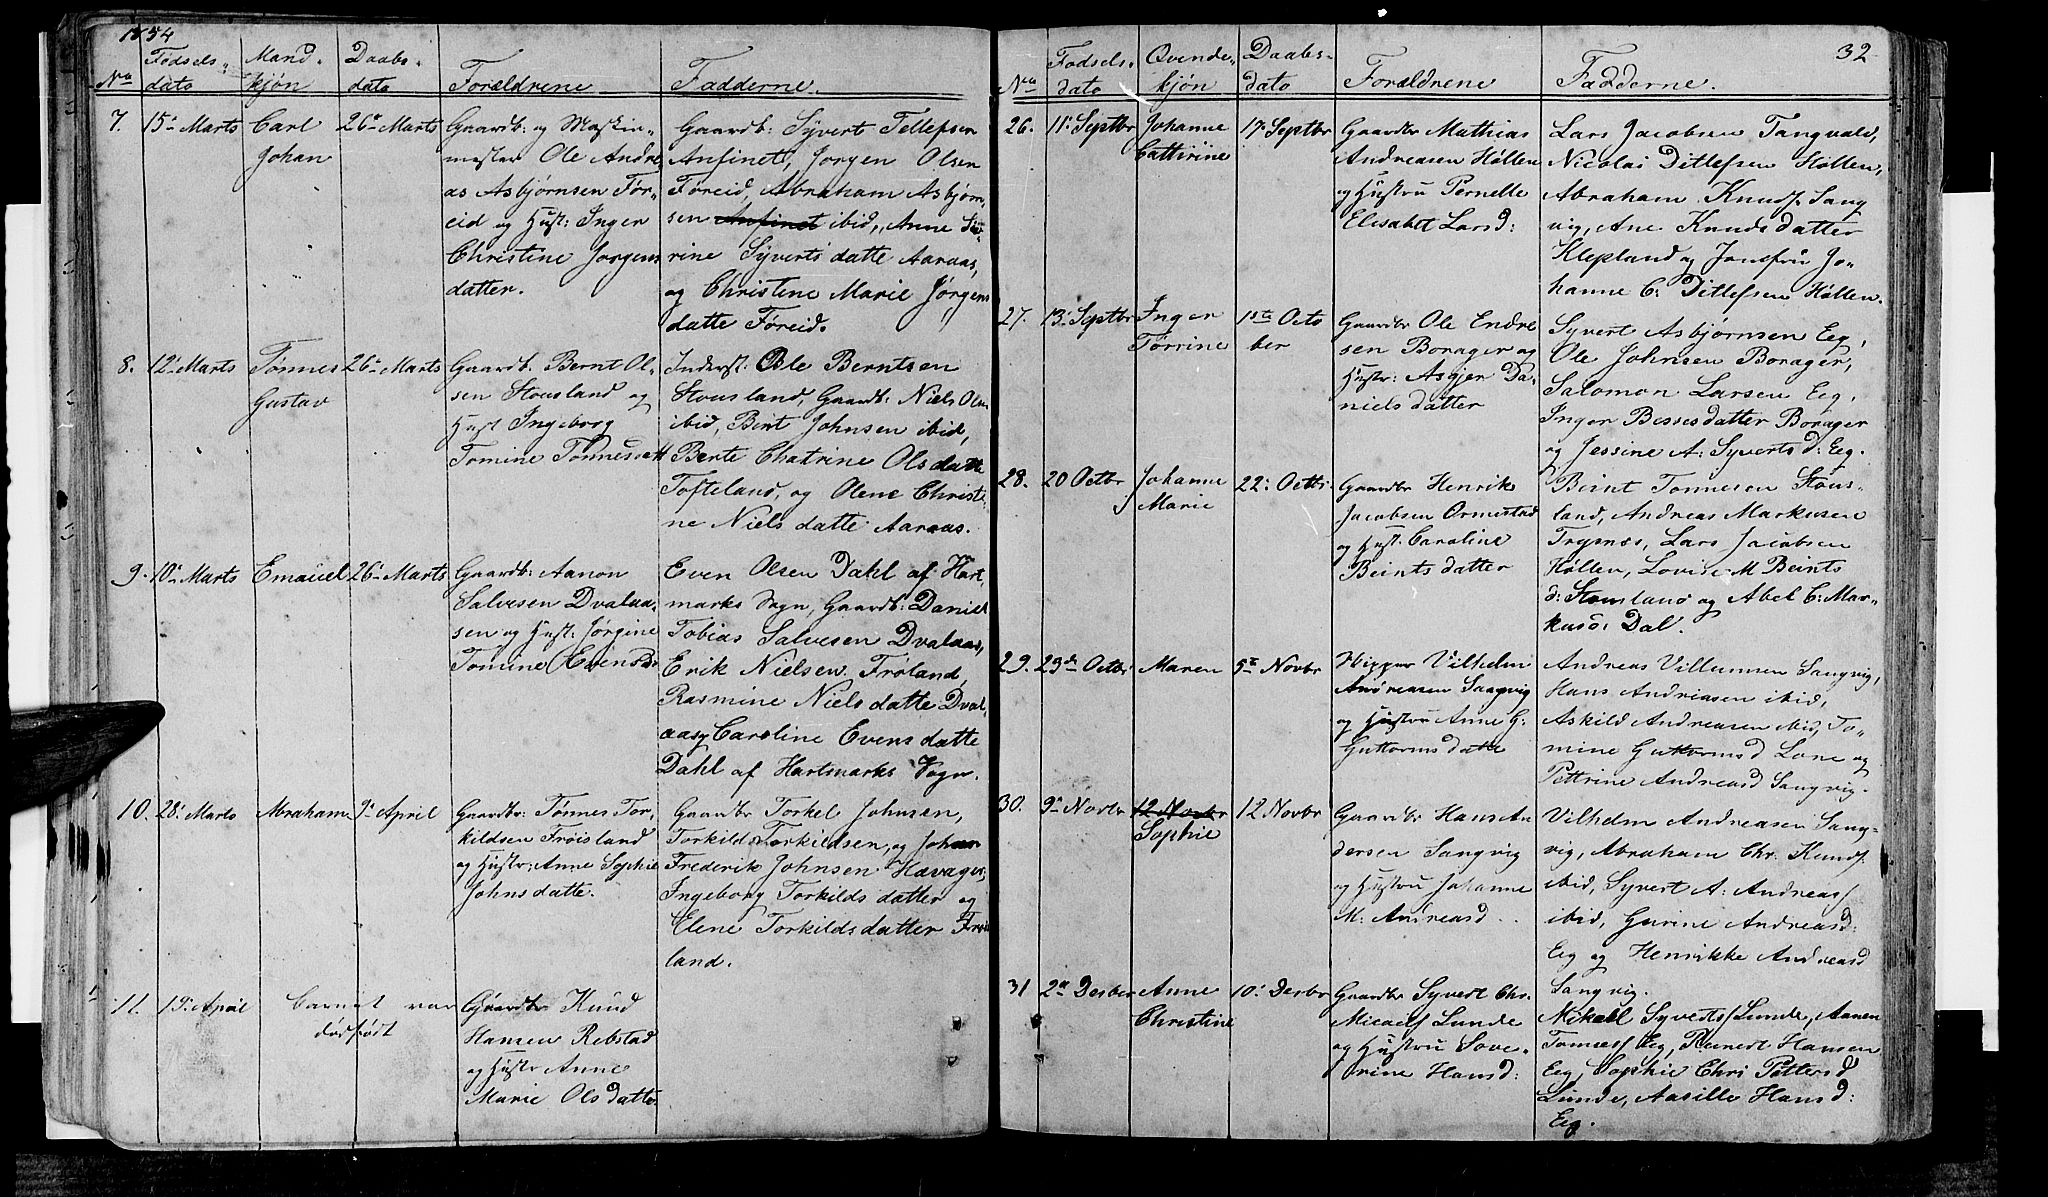 1854
No
Fødsels-
dato
Mand-
kjøn
Daabs-
dato
Forældrene
Fadderne.
7.
15de Marts
Carl
Johan
26de Marts
Gaardb: og Maskin-
mester Ole Andre
as Asbjørnsen Før-
eid og Hust: Inger
Christine Jørgens
datter.
Gaardb: Syvert Tellefsen
Anfinet, Jørgen Olsen
Føreid, Abraham Asbjørn-
sen Anfinet ibid, Anne Se-
rine Syvertsdatte Aaraas,
og Christine Marie Jørgens
datte Føreid.
8.
12te Marts
Tønnes
Gustav
26de Marts
Gaardb: Bernt Ol-
sen Stousland og
Hust Ingeborg
Tomine Tønnesdatt
Inderst: Ole Berntsen
Stousland, Gaardb: Niels Olsen
ibid, Bint Johnsen ibid,
Berte Chatrine Olsdatte
Tofteland, og Olene Christi-
ne Nielsdatte Aaraas.
9.
10de Marts
Emanuel
26de Marts
Gaardb: Aanon
Salvesen Dvalaa-
sen og Hust: Jørgine
Tomine Evensd:
Even Olsen Dahl af Hart-
marks Sogn, Gaardb: Daniel
Tobias Salvesen Dvalaas,
Erik Nielsen Frøland,
Rasmine Nielsdatte Dval-
aas, Caroline Evensdatte
Dahl af Hartmarks Sogn.
10.
28de Marts
Abraham
9de April
Gaardbr: Tønnes Tor-
kildsen Frøisland
og Hustr: Anne Sophie
Johnsdatte.
Gaardbr Torkel Johnsen,
Torkild Torkildsen, og Johan
Frederik Johnsen Havager,
Ingeborg Torkildsdatter og
Elene Torkildsdatter Frøis
land.
11.
19de April
Barnet var
dødfødt
Gaardbr Knud
Hansen Rebstad
og Hustr Anne
Marie Olsdatte.
32
No
Fødsels-
dato
Qvinde-
kjøn
Daabs-
dato
Forældrene
Fadderne.
26.
11te Septbr
Johanne
Cathrine
17de Septbr
Gaardbr Mathias
Andreasen Høllen
og Hustru Pernelle
Elisabet Larsd:
Lars Jacobsen Tangvald,
Nicolai Ditlefsen Høllen,
Abraham Knuds. Sang
vig, Ane Knudsdatter
Klepland og Jomfru Jo-
hanne C: Ditlefsen Høllen.
27.
13de Septbr
Inger
Tørrine
15te Octo
ber
Gaardbr Ole Endre
sen Borager og
Hustr: Asbjer Da-
nielsdatter
Syvert Asbjørnsen Eeg,
Ole Johnsen Borager,
Salomon Larsen Eeg,
Inger Bessesdatter Borager
og Jessine A: Syvertsd: Eeg.
28.
20 Octbr
Johanne
Marie
22de Octbr
Gaardbr Henrik
Jacobsen Ormestad
og Hust: Caroline
Beintsdatter
Beint Tønnesen Støus-
land, Andreas Markusen
Trysnæs, Lars Jacobsen
Høllen, Lovise M Beints
d: Stousland og Abel C: Mar-
kusd: Dal.
29.
23de Octbr
Maren
5te Novbr
Skipper Vilhelm
Andreasen Sangvig
og Hustru Anne G:
Guttormsdatte
Andreas Villumsen Sangvig,
Hans Andreasen ibid,
Askild Andreasen ibid, To-
mine Guttormsd Lone og
Pettrine Andreasd Sangvig.
30.
9de Novbr
12 Novbr
Sophie
12 Novbr
Gaardbr Hans An
dersen Sangvig
og Hustru Johanne
M: Andreasd
Vilhelm Andreasen Sang-
vig, Abraham Chr. Knuds.
ibid, Syvert A: Andreas/
ibid, Gurine Andreasd:
Eeg og Henrikke Andreasd
Sangvig.
31
2den Desber
Anne
Christine
10de Desbr
Gaardbr Syvert Chr.
Micaels Lunde
og Hustru Sove-
rine Hansd:
Mikall Syverts/ Lunde, Aanen
Tønnes/ Eeg, Reinert Hansen
Eeg, Sophie Chri Pettersd
Lunde, Aasille Hansd:
Eeg.